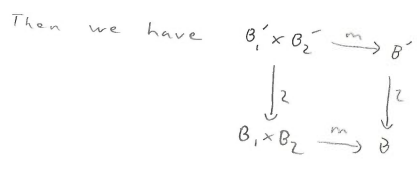 Then we have B₁′ × B₂′ m→ B′
↓2 ↓2
B₁ × B₂ m→ B